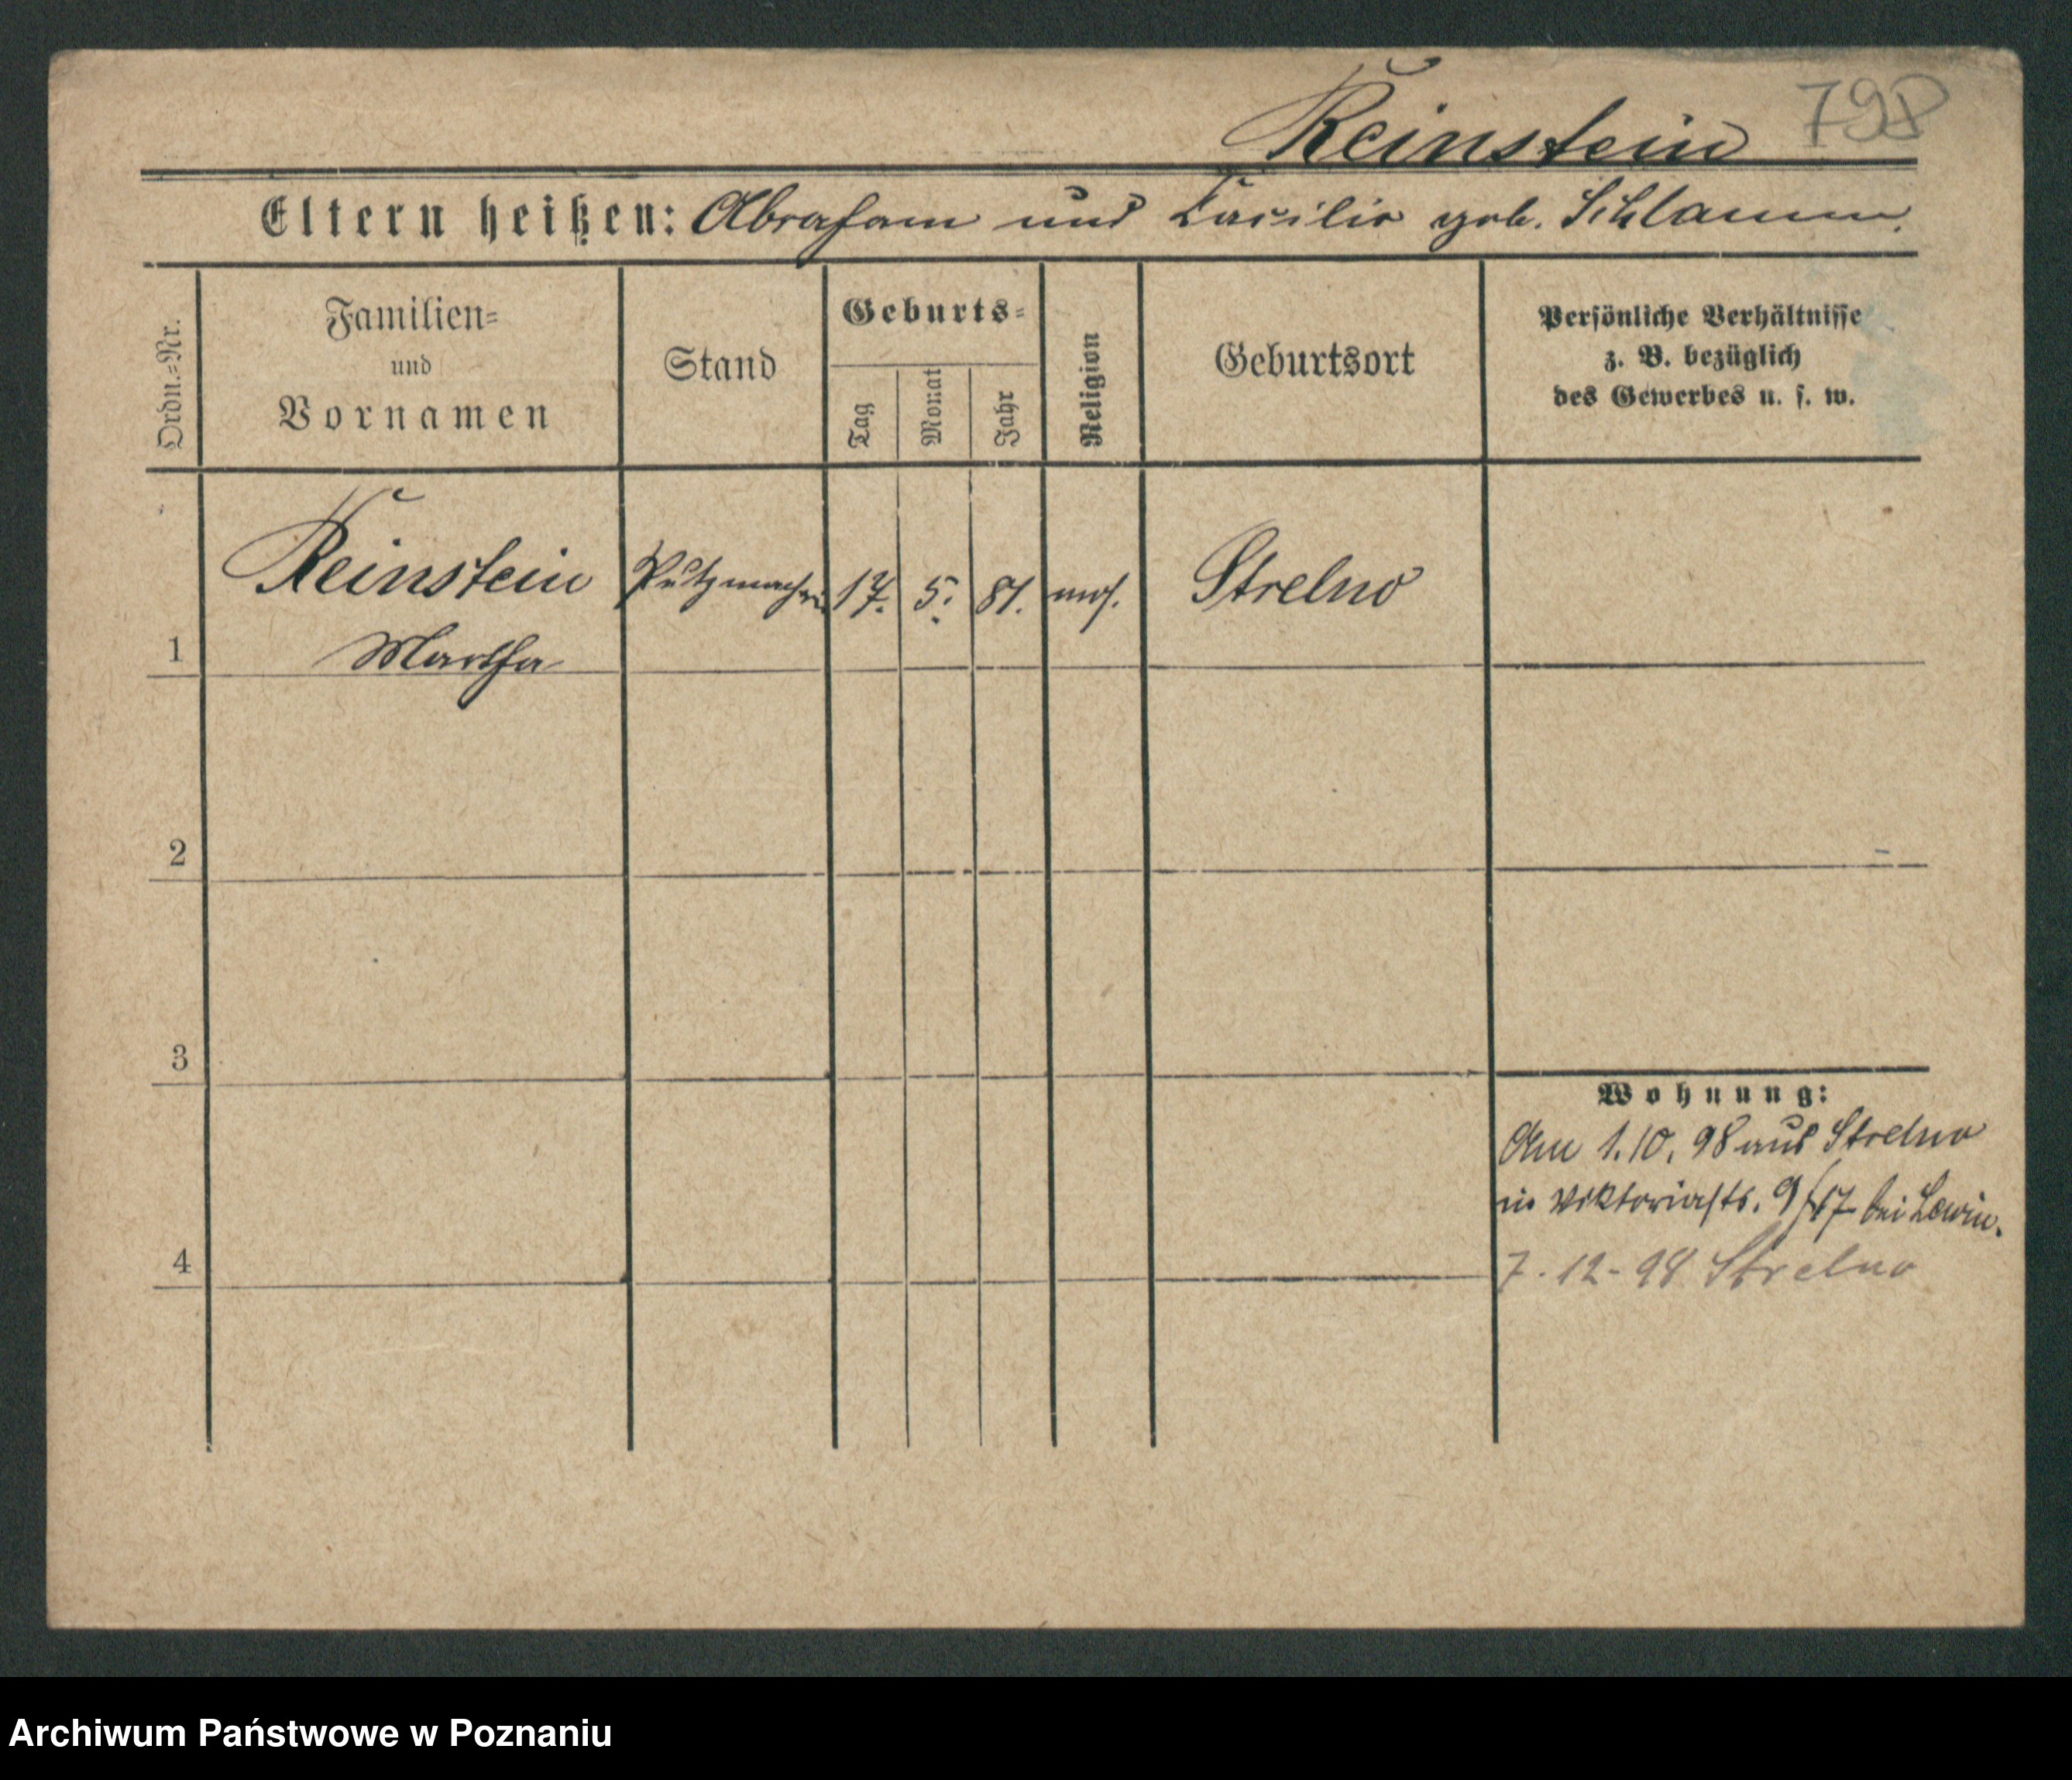 Reinstein 798
Eltern heißen: Abraham und Cäcilie geb. Schlamm.
Ordn.-Nr.
Familien=
und
Vornamen
Stand
Geburts=
Tag
Monat
Jahr
Religion
Geburtsort
Persönliche Verhältnisse
z. B. bezüglich
des Gewerbes u. s. w.
1 Reinstein Putzmacherin 17. 5. 81. mos. Strelno
Martha
2
3
4
Wohnung:
Am 1.10.98 aus Strelno
in Viktoriastr. 9/17 bei Lewin.
7.12-98 Strelno
Archiwum Państwowe w Poznaniu